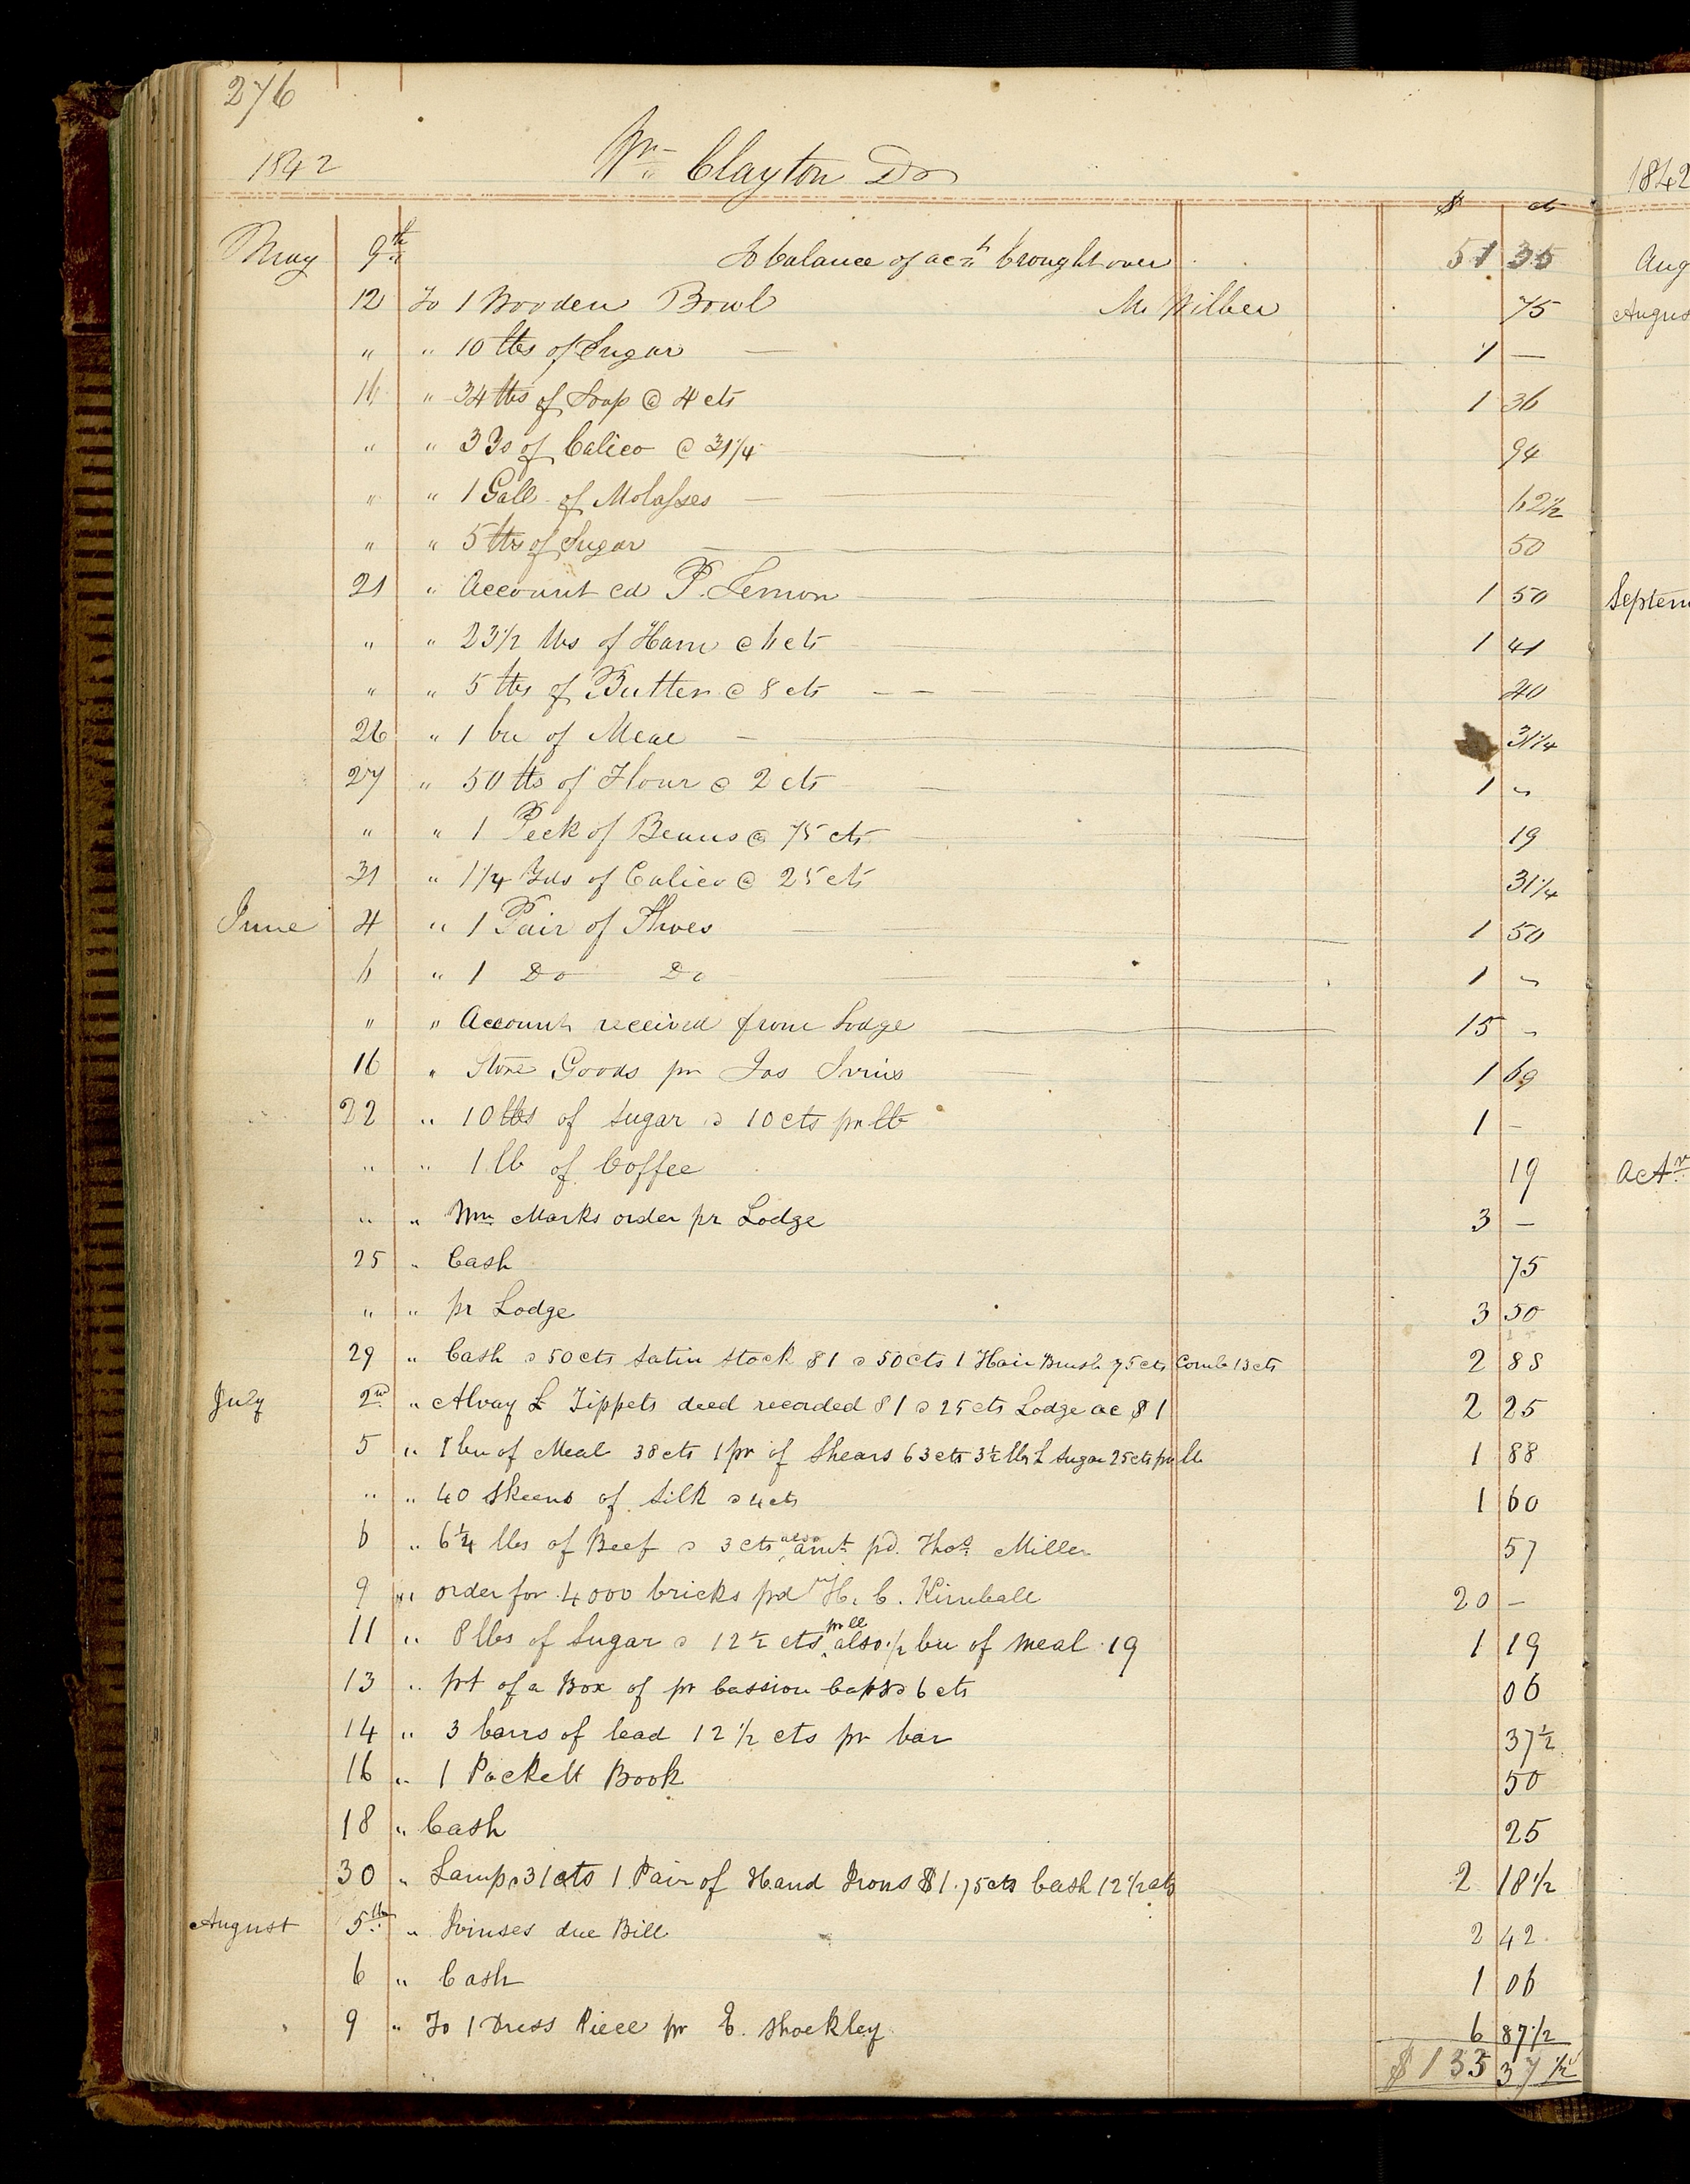 276
1842 Wm Clayton Dr
$ cts
May 9th To balance of act brought over 51 35
12 To 1 Wooden Bowl Mr Wilber 75
" " 10 lbs of Sugar — 1 —
16 " 34 lbs of Soap @ 4 cts 1 36
" " 3 Yds of Calico @ 31 1/4 94
" " 1 Gall of Molasses — 62 1/2
" " 5 lbs of Sugar — 50
21 " Account cd P. Lemon — 1 50
" " 23 1/2 lbs of Ham @ 6 cts 1 41
" " 5 lbs of Butter @ 8 cts — 40
26 " 1 bu of Meal — 31 1/4
27 " 50 lbs of Flour @ 2 cts 1 "
" " 1 Peck of Beans @ 75 cts 19
31 " 1 1/4 Yds of Calico @ 25 cts 31 1/4
June 4 " 1 Pair of Shoes 1 50
6 " 1 Do Do 1 "
" " Account received from Lodge 15 "
16 " Store Goods pr Jas Ivins 1 69
22 " 10 lbs of Sugar @ 10 cts pr lb 1 —
" " 1 lb of Coffee 19
" " Wm Marks order pr Lodge 3 —
25 " Cash 75
" " pr Lodge 3 50
29 " Cash @ 50 cts Satin Stock $1 @ 50 cts 1 Hair Brush 75 cts Comb 13 cts 2 88
July 2nd " Alvay L Tippets deed recorded $1 @ 25 cts Lodge ac $1 2 25
5 " 1 bu of Meal 38 cts 1 pr of Shears 63 cts 3 1/2 lbs L Sugar 25 cts pr lb 1 88
" " 40 Skeens of Silk @ 4 cts 1 60
6 " 6 1/4 lbs of Beef @ 3 cts also amt pd. Thos Miller 57
9 " order for 4000 bricks pd H. C. Kimball 20 —
11 " 8 lbs of Sugar @ 12 1/2 cts pr lb also 1/2 bu of meal 19 1 19
13 " pt of a Box of pr cassion caps @ 6 cts 06
14 " 3 barrs of lead 12 1/2 cts pr bar 37 1/2
16 " 1 Pockett Book 50
18 " Cash 25
30 " Lamp @ 31 cts 1 Pair of Hand Irons $1.75 cts Cash 12 1/2 cts 2 18 1/2
August 5th " Prinses due Bill 2 42
6 " Cash 1 06
9 " To 1 Dress Piece pr E. Shockley 6 87 1/2
$ 133 37 1/2
1842
Aug
Augus
Septem
Act